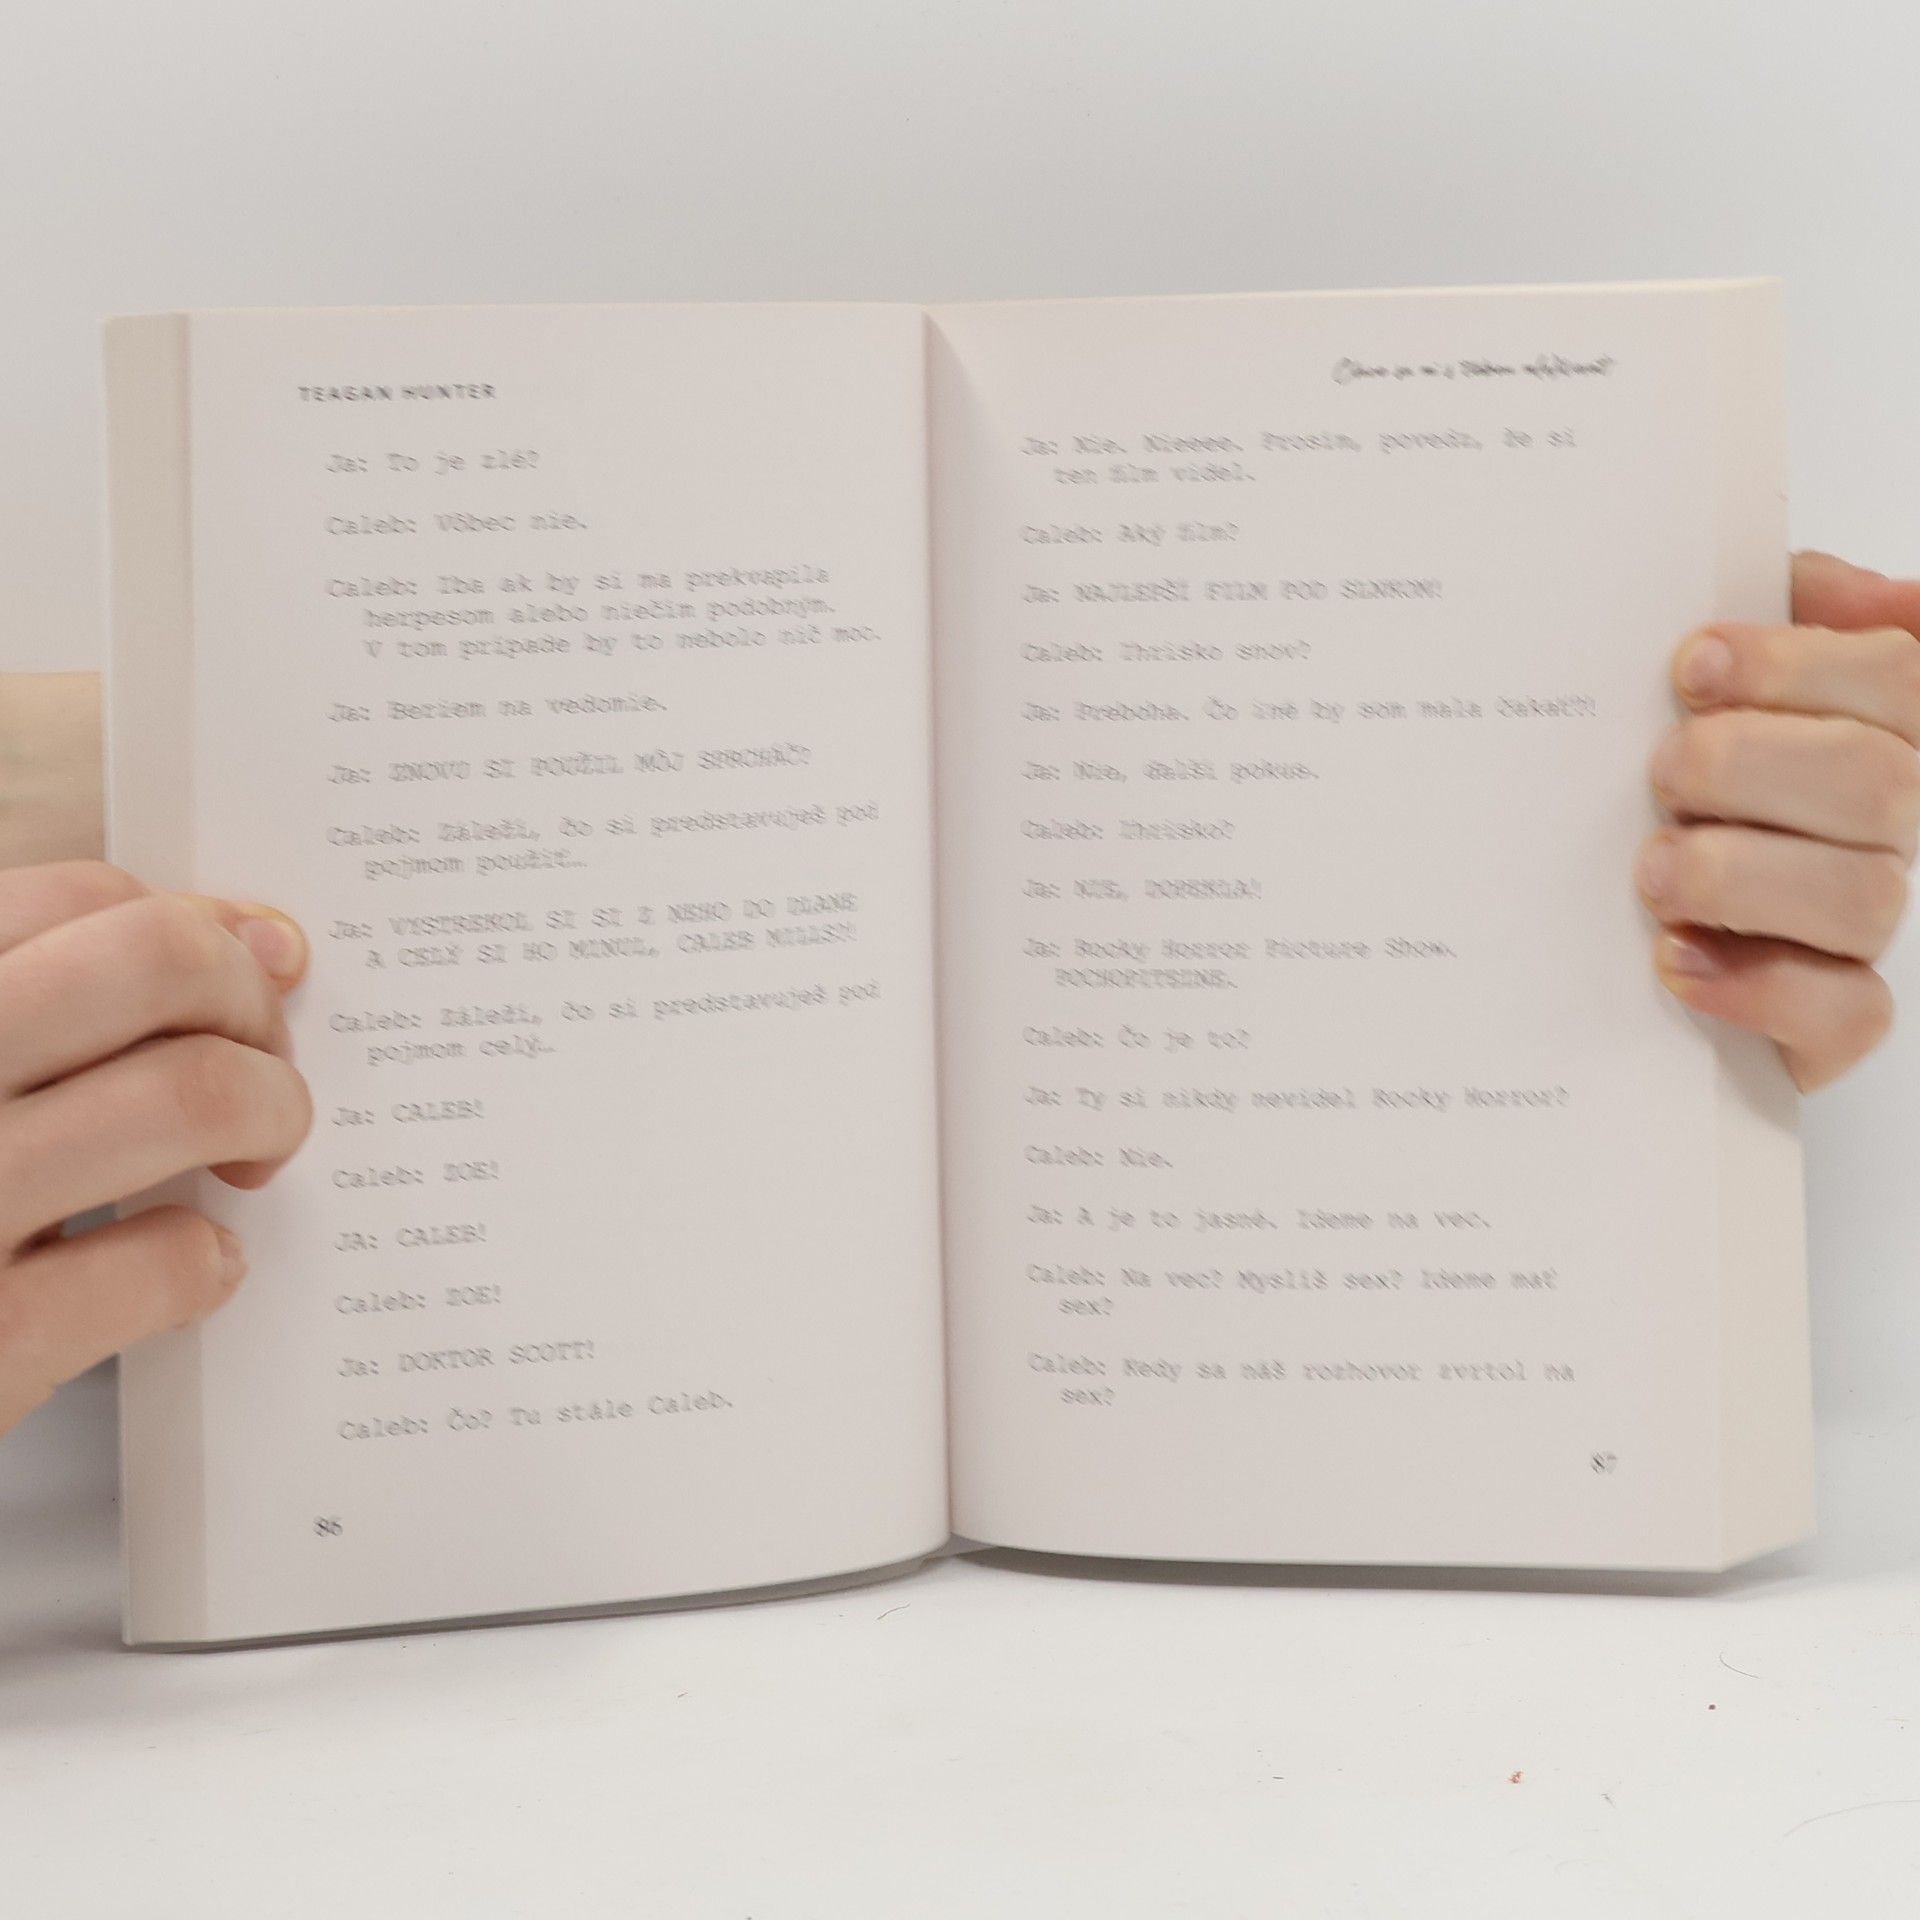 TEAGAN HUNTER
Ja: To je zlé?
Caleb: Vôbec nie.
Caleb: Iba ak by si ma prekvapila
herpesom alebo niečím podobným.
V tom prípade by to nebolo nič moc.
Ja: Beriem na vedomie.
Ja: ZNOVU SI POUŽIL MÔJ SPRCHÁČ?
Caleb: Záleží, čo si predstavuješ pod
pojmom použiť…
Ja: VYSTREKOL SI SI Z NEHO DO DLANE
A CELÝ SI HO MINUL, CALEB MILLS?!
Caleb: Záleží, čo si predstavuješ pod
pojmom celý…
Ja: CALEB!
Caleb: ZOE!
JA: CALEB!
Caleb: ZOE!
Ja: DOKTOR SCOTT!
Caleb: Čo? Tu stále Caleb.
86
Chce sa mi s Tebou
Ja: Nie. Nieeee. Prosím, povedz, že si
ten film videl.
Caleb: Aký film?
Ja: NAJLEPŠÍ FILM POD SLNKOM!
Caleb: Ihrisko snov?
Ja: Preboha. Čo iné by som mala čakať?!
Ja: Nie, ďalší pokus.
Caleb: Ihrisko?
Ja: NIE, DOPEKLA!
Ja: Rocky Horror Picture Show.
POCHOPITEĽNE.
Caleb: Čo je to?
Ja: Ty si nikdy nevidel Rocky Horror?
Caleb: Nie.
Ja: A je to jasné. Ideme na vec.
Caleb: Na vec? Myslíš sex? Ideme mať
sex?
Caleb: Kedy sa náš rozhovor zvrtol na
sex?
87